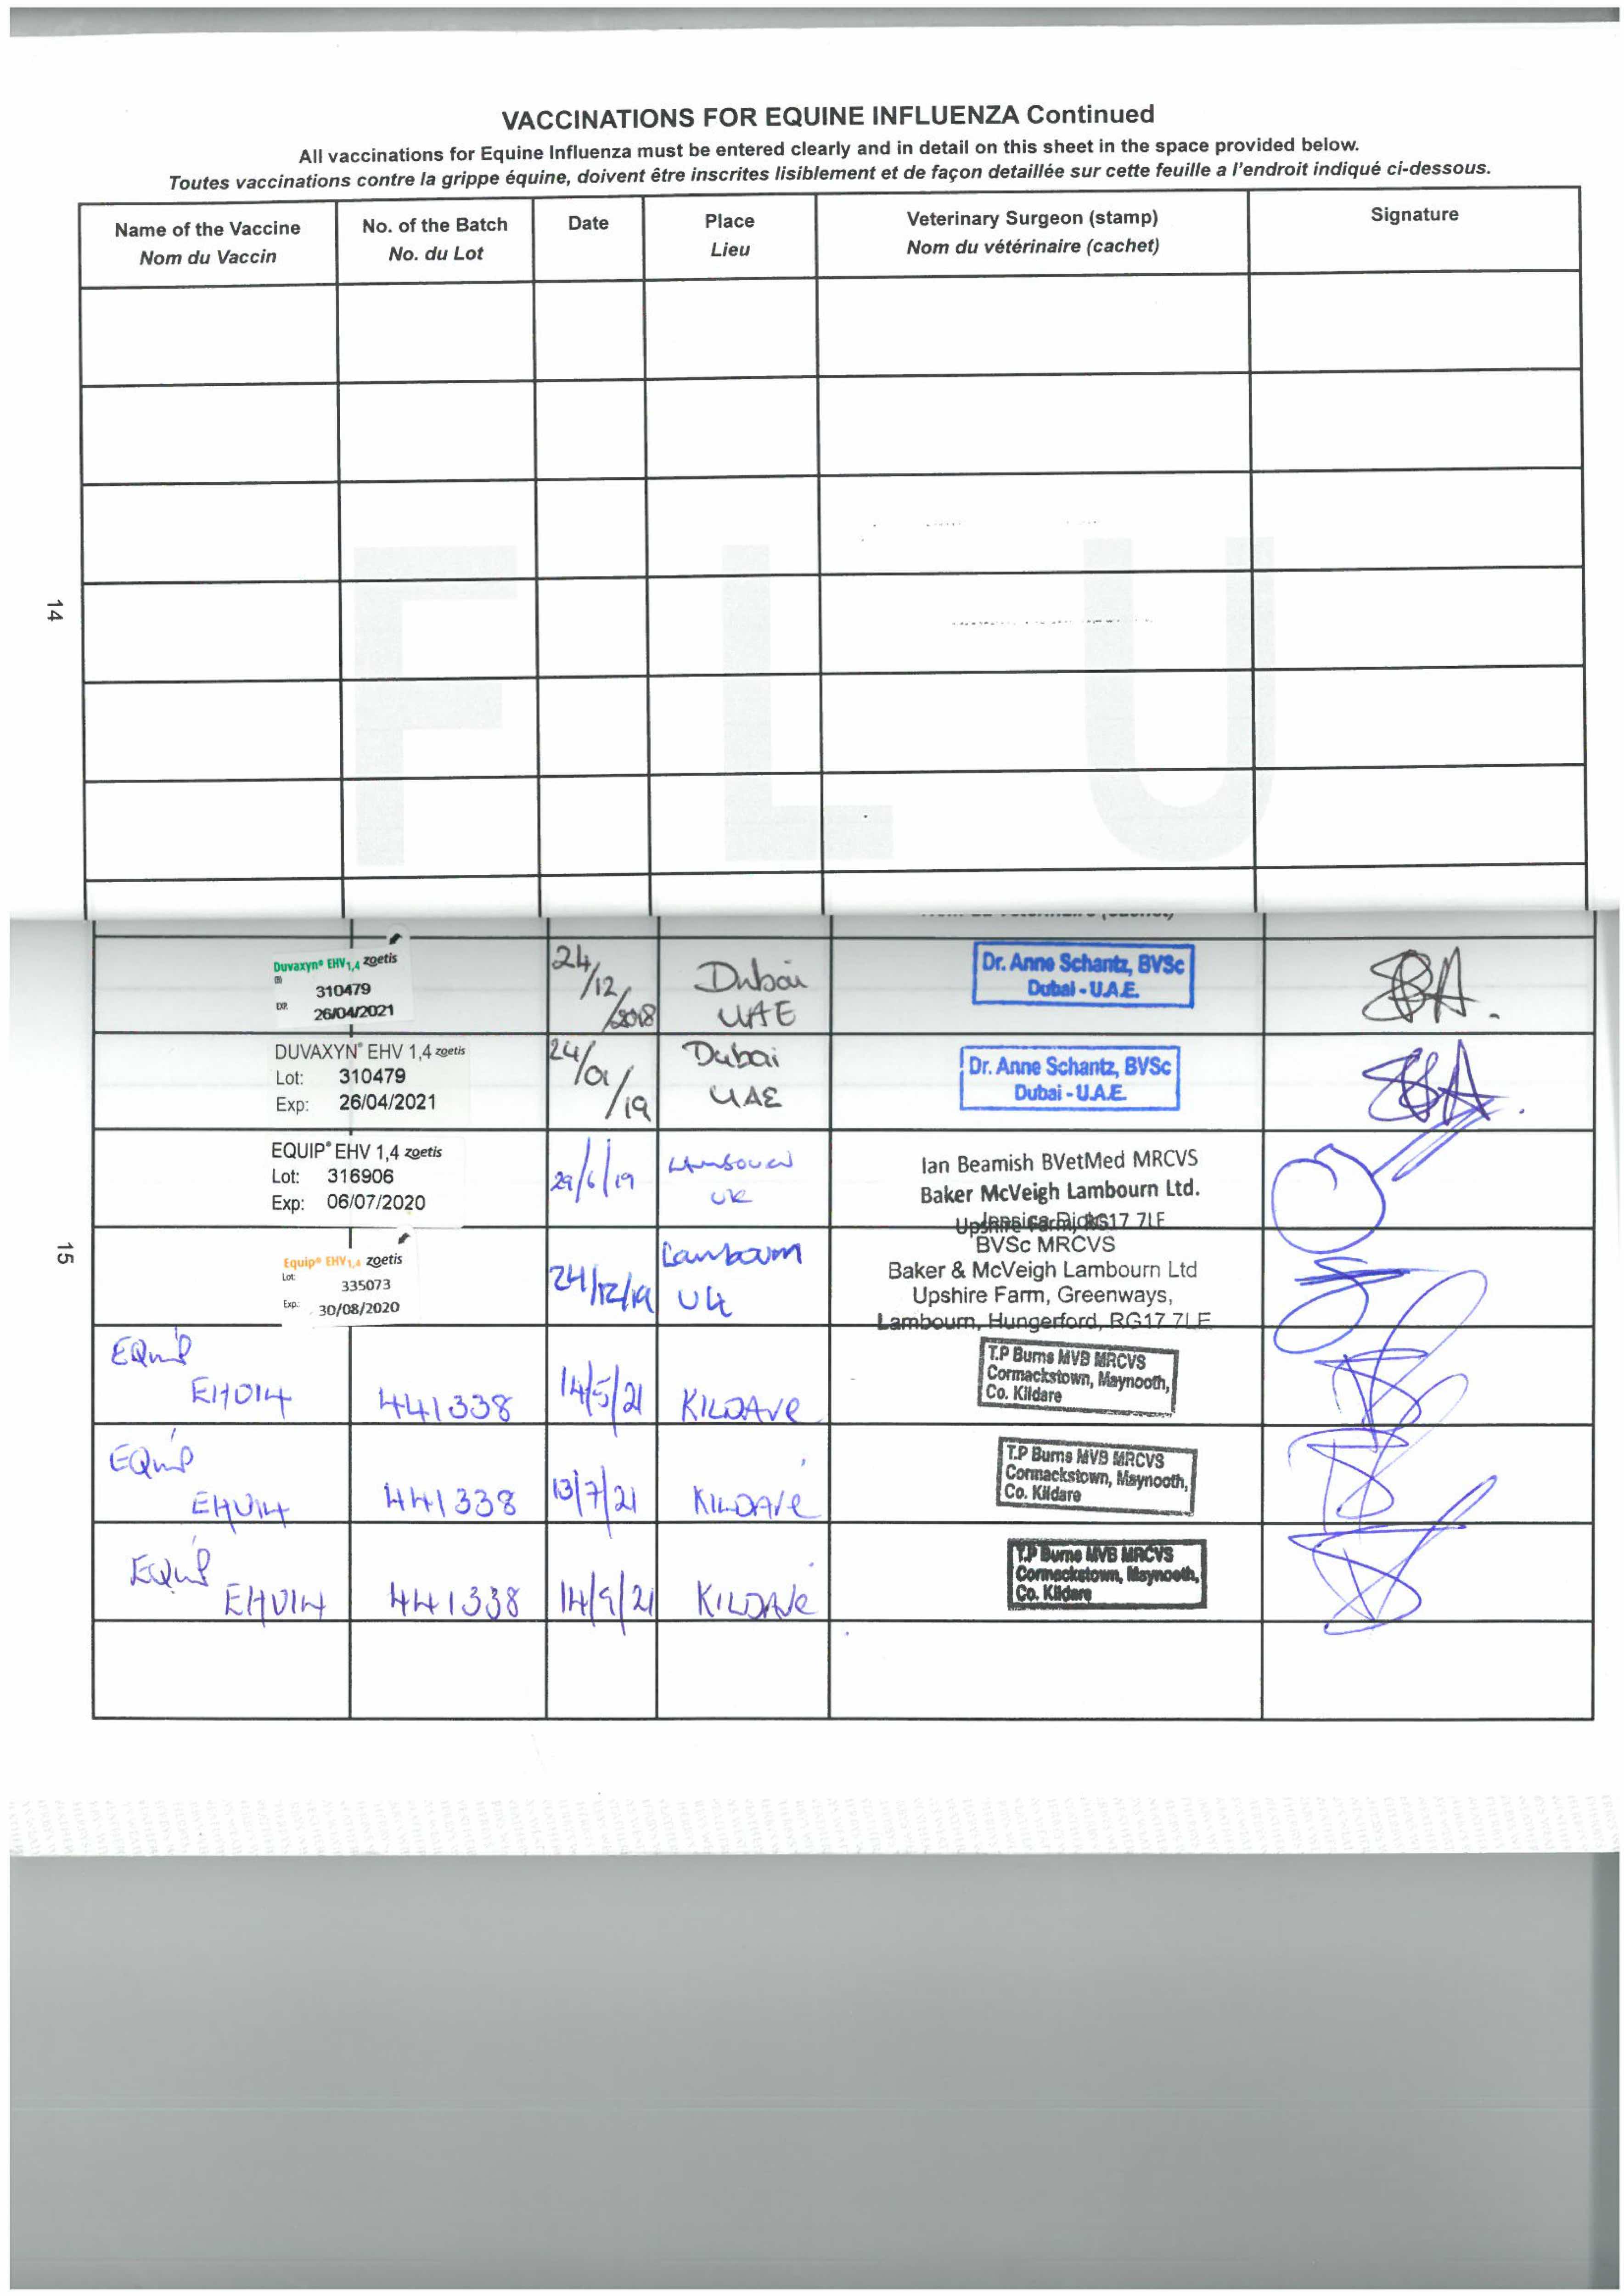 VACCINATIONS FOR EQUINE INFLUENZA Continued
All vaccinations for Equine Influenza must be entered clearly and in detail on this sheet in the space provided below.
Toutes vaccinations contre la grippe équine, doivent être inscrites lisiblement et de façon detaillée sur cette feuille a l'endroit indiqué ci-dessous.
Name of the Vaccine
Nom du Vaccin
No. of the Batch
No. du Lot
Date
Place
Lieu
Veterinary Surgeon (stamp)
Nom du vétérinaire (cachet)
Signature
FLU
14
Duvaxyn® EHV1,4 zoetis
310479
EXP. 26/04/2021
24/12/2018
Dubai
UAE
Dr. Anne Schantz, BVSc
Dubai - U.A.E.
DUVAXYN® EHV 1,4 zoetis
Lot: 310479
Exp: 26/04/2021
24/01/19
Dubai
UAE
Dr. Anne Schantz, BVSc
Dubai - U.A.E.
EQUIP® EHV 1,4 zoetis
Lot: 316906
Exp: 06/07/2020
29/6/19
Lambourn
UK
Ian Beamish BVetMed MRCVS
Baker McVeigh Lambourn Ltd.
15
Equip® EHV1,4 zoetis
Lot: 335073
Exp.: 30/08/2020
24/12/19
Lambourn
UK
BVSc MRCVS
Baker & McVeigh Lambourn Ltd
Upshire Farm, Greenways,
Lambourn, Hungerford, RG17 7LE
EQuip
EHV14
441338
14/5/21
KILDAre
T.P Burns MVB MRCVS
Cormackstown, Maynooth,
Co. Kildare
EQuip
EHV14
441338
13/7/21
KILDAre
T.P Burns MVB MRCVS
Cormackstown, Maynooth,
Co. Kildare
EQuip
EHV14
441338
14/9/21
KILDAre
T.P Burns MVB MRCVS
Cormackstown, Maynooth,
Co. Kildare